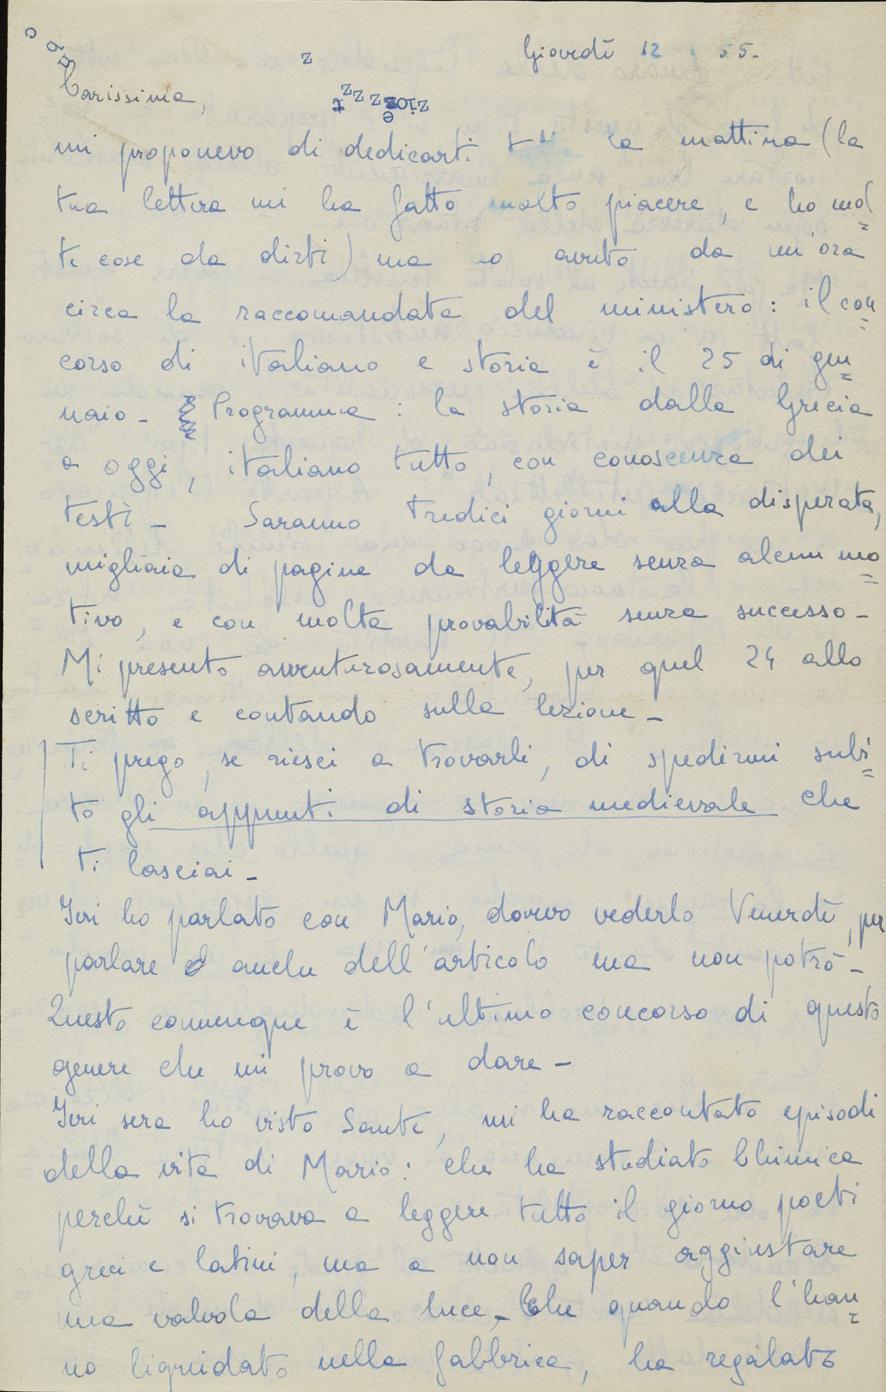 Giovedì 12 1 55.
Carissima,
mi proponevo di dedicarti tt la mattina (la
tua lettera mi ha fatto molto piacere, e ho mol=
te cose da dirti) ma ho avuto da un'ora
circa la raccomandata del ministero: il con=
corso di italiano e storia è il 25 di gen=
naio - Programma: la storia dalla Grecia
a oggi, italiano tutto, con conoscenza dei
testi - Saranno tredici giorni alla disperata,
migliaia di pagine da leggere senza alcun mo=
tivo, e con molta provabilità senza successo -
Mi presento avventurosamente, per quel 24 allo
scritto e contando sulla lezione -
Ti prego, se riesci a trovarli, di spedirmi subi=
to gli appunti di storia medievale che
ti lasciai -
Ieri ho parlato con Mario, dovevo vederlo Venerdì, per
parlare anche dell'articolo ma non potrò -
Questo comunque è l'ultimo concorso di questo
genere che mi provo a dare -
Ieri sera ho visto Sante, mi ha raccontato episodi
della vita di Mario: che ha studiato Chimica
perché si trovava a leggere tutto il giorno poeti
greci e latini, ma a non saper aggiustare
una valvola della luce - Che quando l'han=
no liquidato nella fabbrica, ha regalato